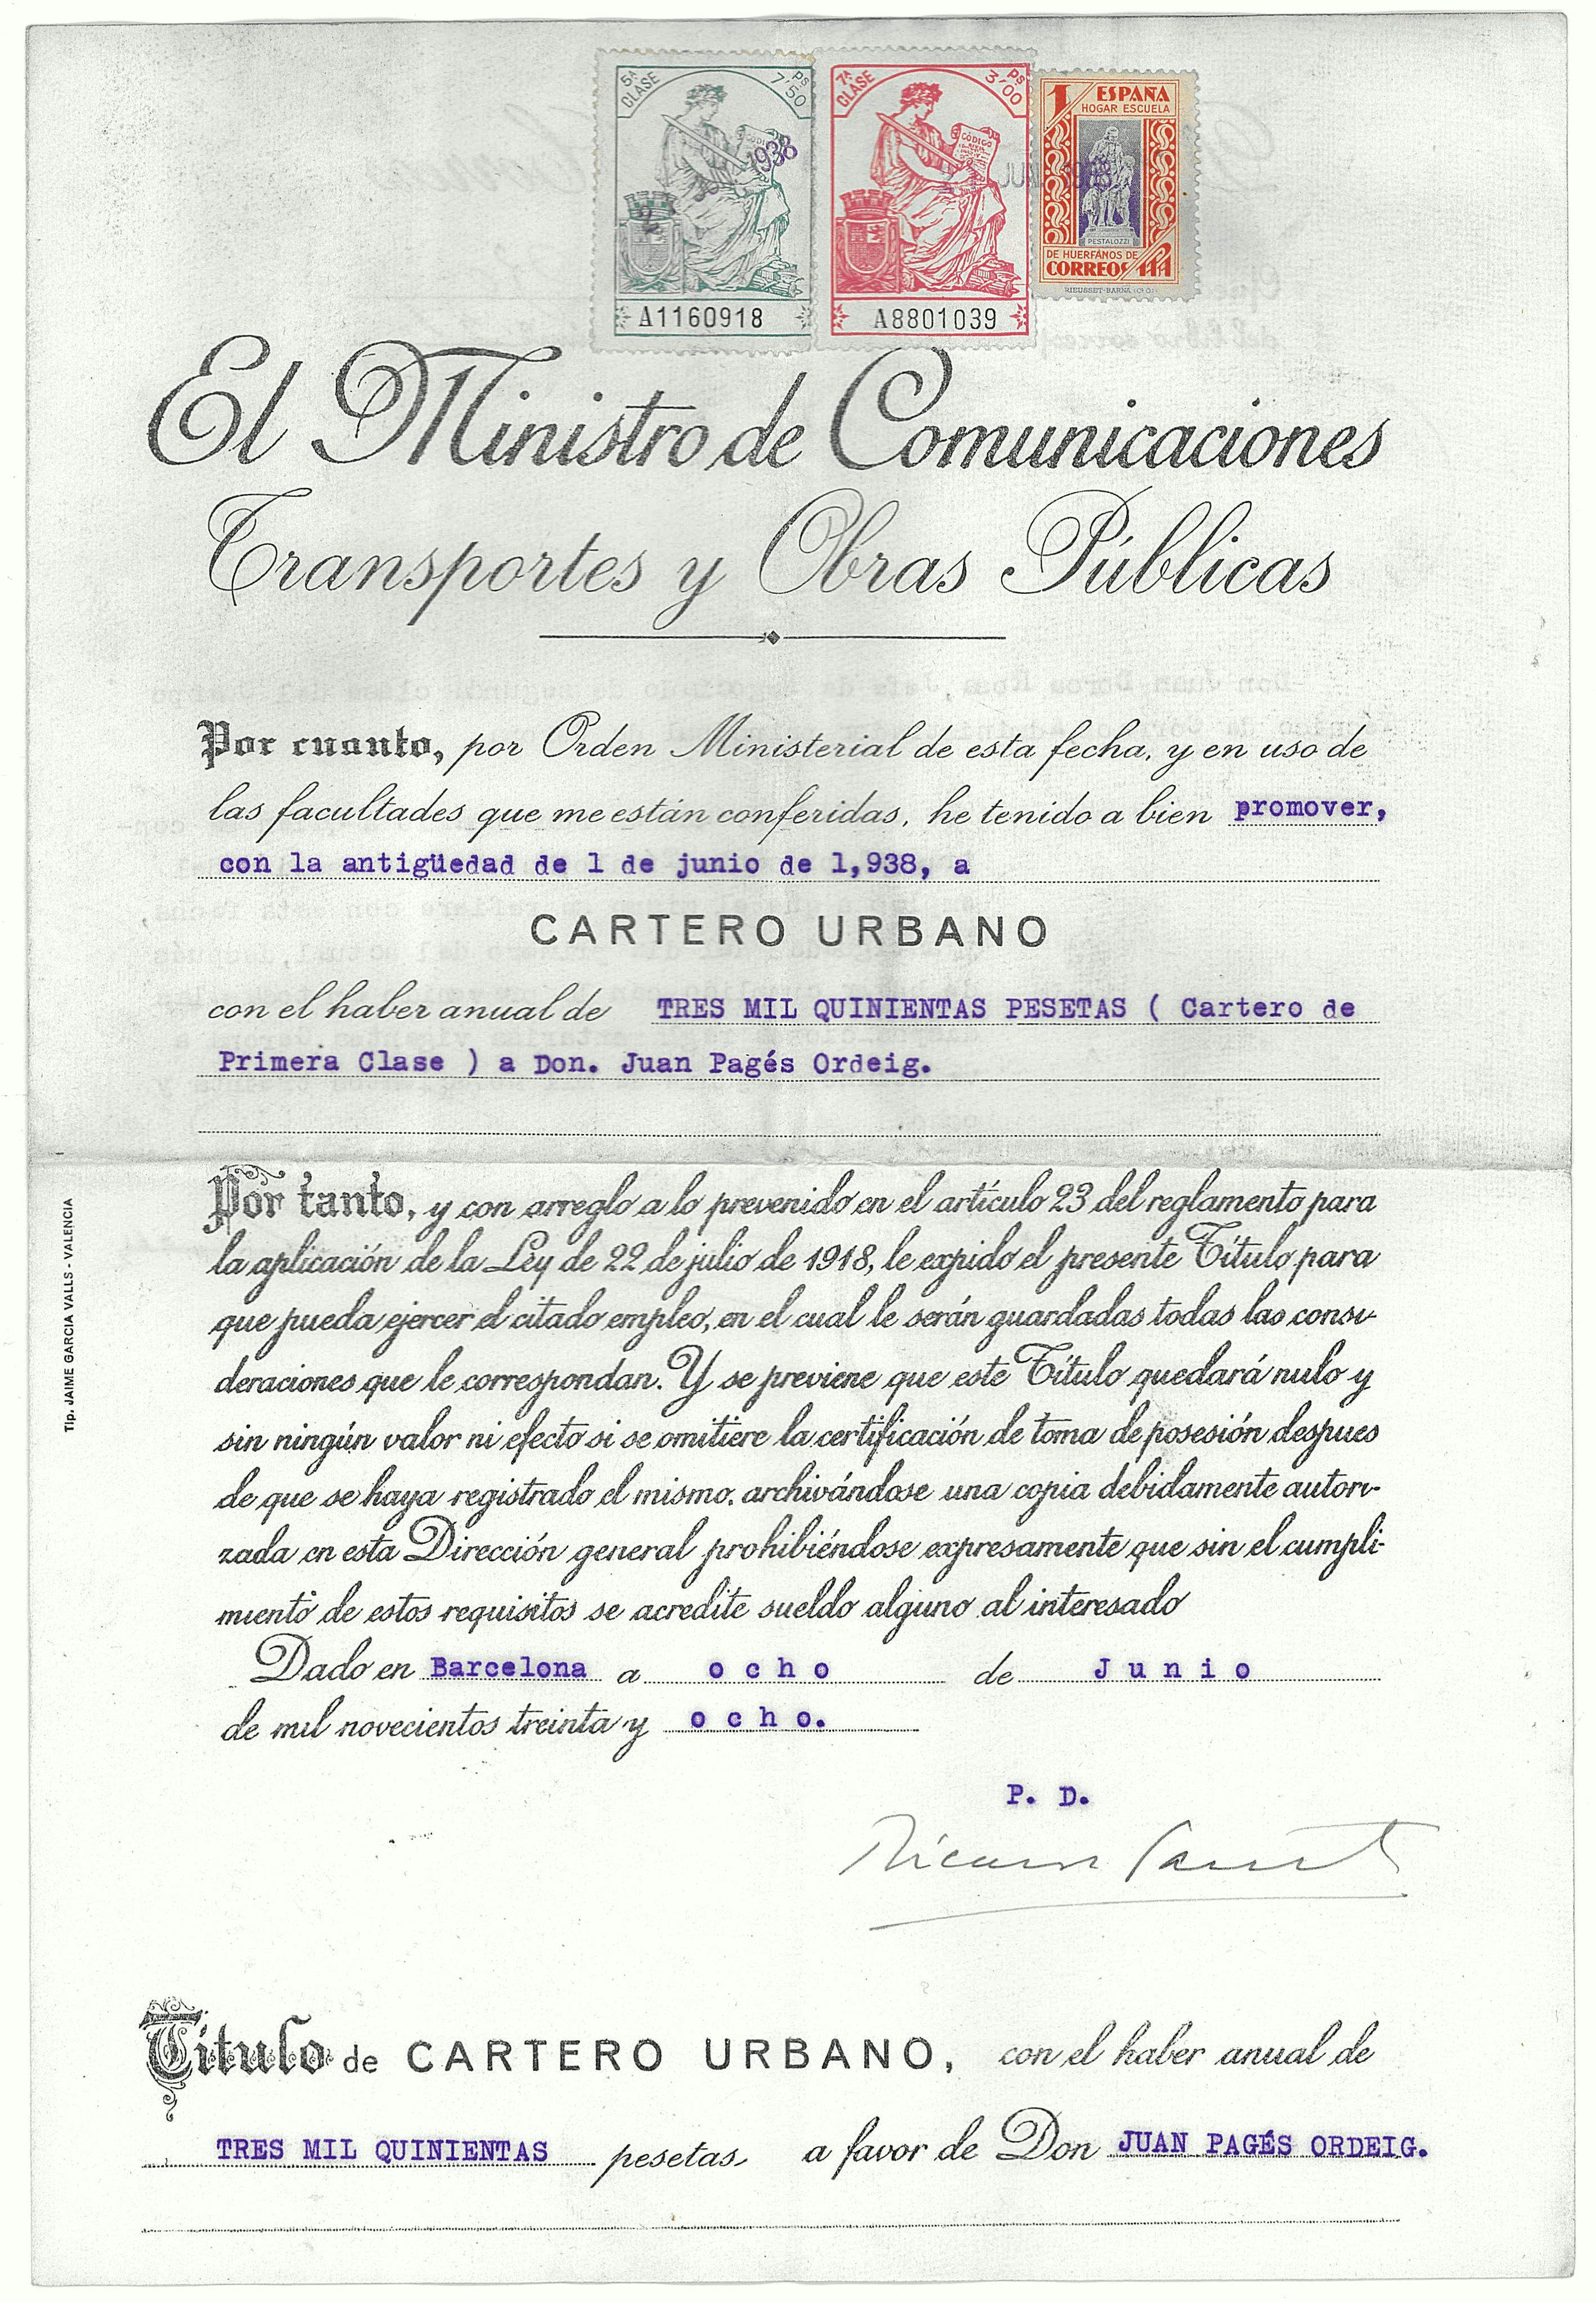 5ª CLASE
Ps 7'50
CÓDIGO
1938
A1160918
7ª CLASE
Ps 3'00
CÓDIGO
A8801039
JUN 1938
1 ESPAÑA
HOGAR ESCUELA
PESTALOZZI
DE HUERFANOS DE
CORREOS 1 PTA
RIEUSSET-BARNA
El Ministro de Comunicaciones
Transportes y Obras Públicas
Por cuanto, por Orden Ministerial de esta fecha, y en uso de
las facultades que me están conferidas, he tenido a bien promover,
con la antigüedad de 1 de junio de 1,938, a
CARTERO URBANO
con el haber anual de TRES MIL QUINIENTAS PESETAS ( Cartero de
Primera Clase ) a Don. Juan Pagés Ordeig.
Por tanto, y con arreglo a lo prevenido en el artículo 23 del reglamento para
la aplicación de la Ley de 22 de julio de 1918, le expido el presente Título para
que pueda ejercer el citado empleo, en el cual le serán guardadas todas las consi-
deraciones que le correspondan. Y se previene que este Título quedará nulo y
sin ningún valor ni efecto si se omitiere la certificación de toma de posesión despues
de que se haya registrado el mismo, archivándose una copia debidamente autori-
zada en esta Dirección general prohibiéndose expresamente que sin el cumpli-
miento de estos requisitos se acredite sueldo alguno al interesado
Dado en Barcelona a ocho de Junio
de mil novecientos treinta y ocho.
P. D.
Tip. JAIME GARCIA VALLS - VALENCIA
Título de CARTERO URBANO, con el haber anual de
TRES MIL QUINIENTAS pesetas, a favor de Don JUAN PAGÉS ORDEIG.